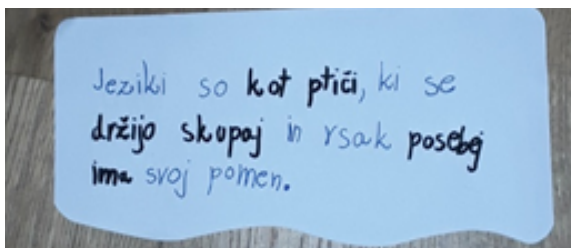 Jeziki so kot ptiči, ki se
držijo skupaj in vsak posebej
ima svoj pomen.